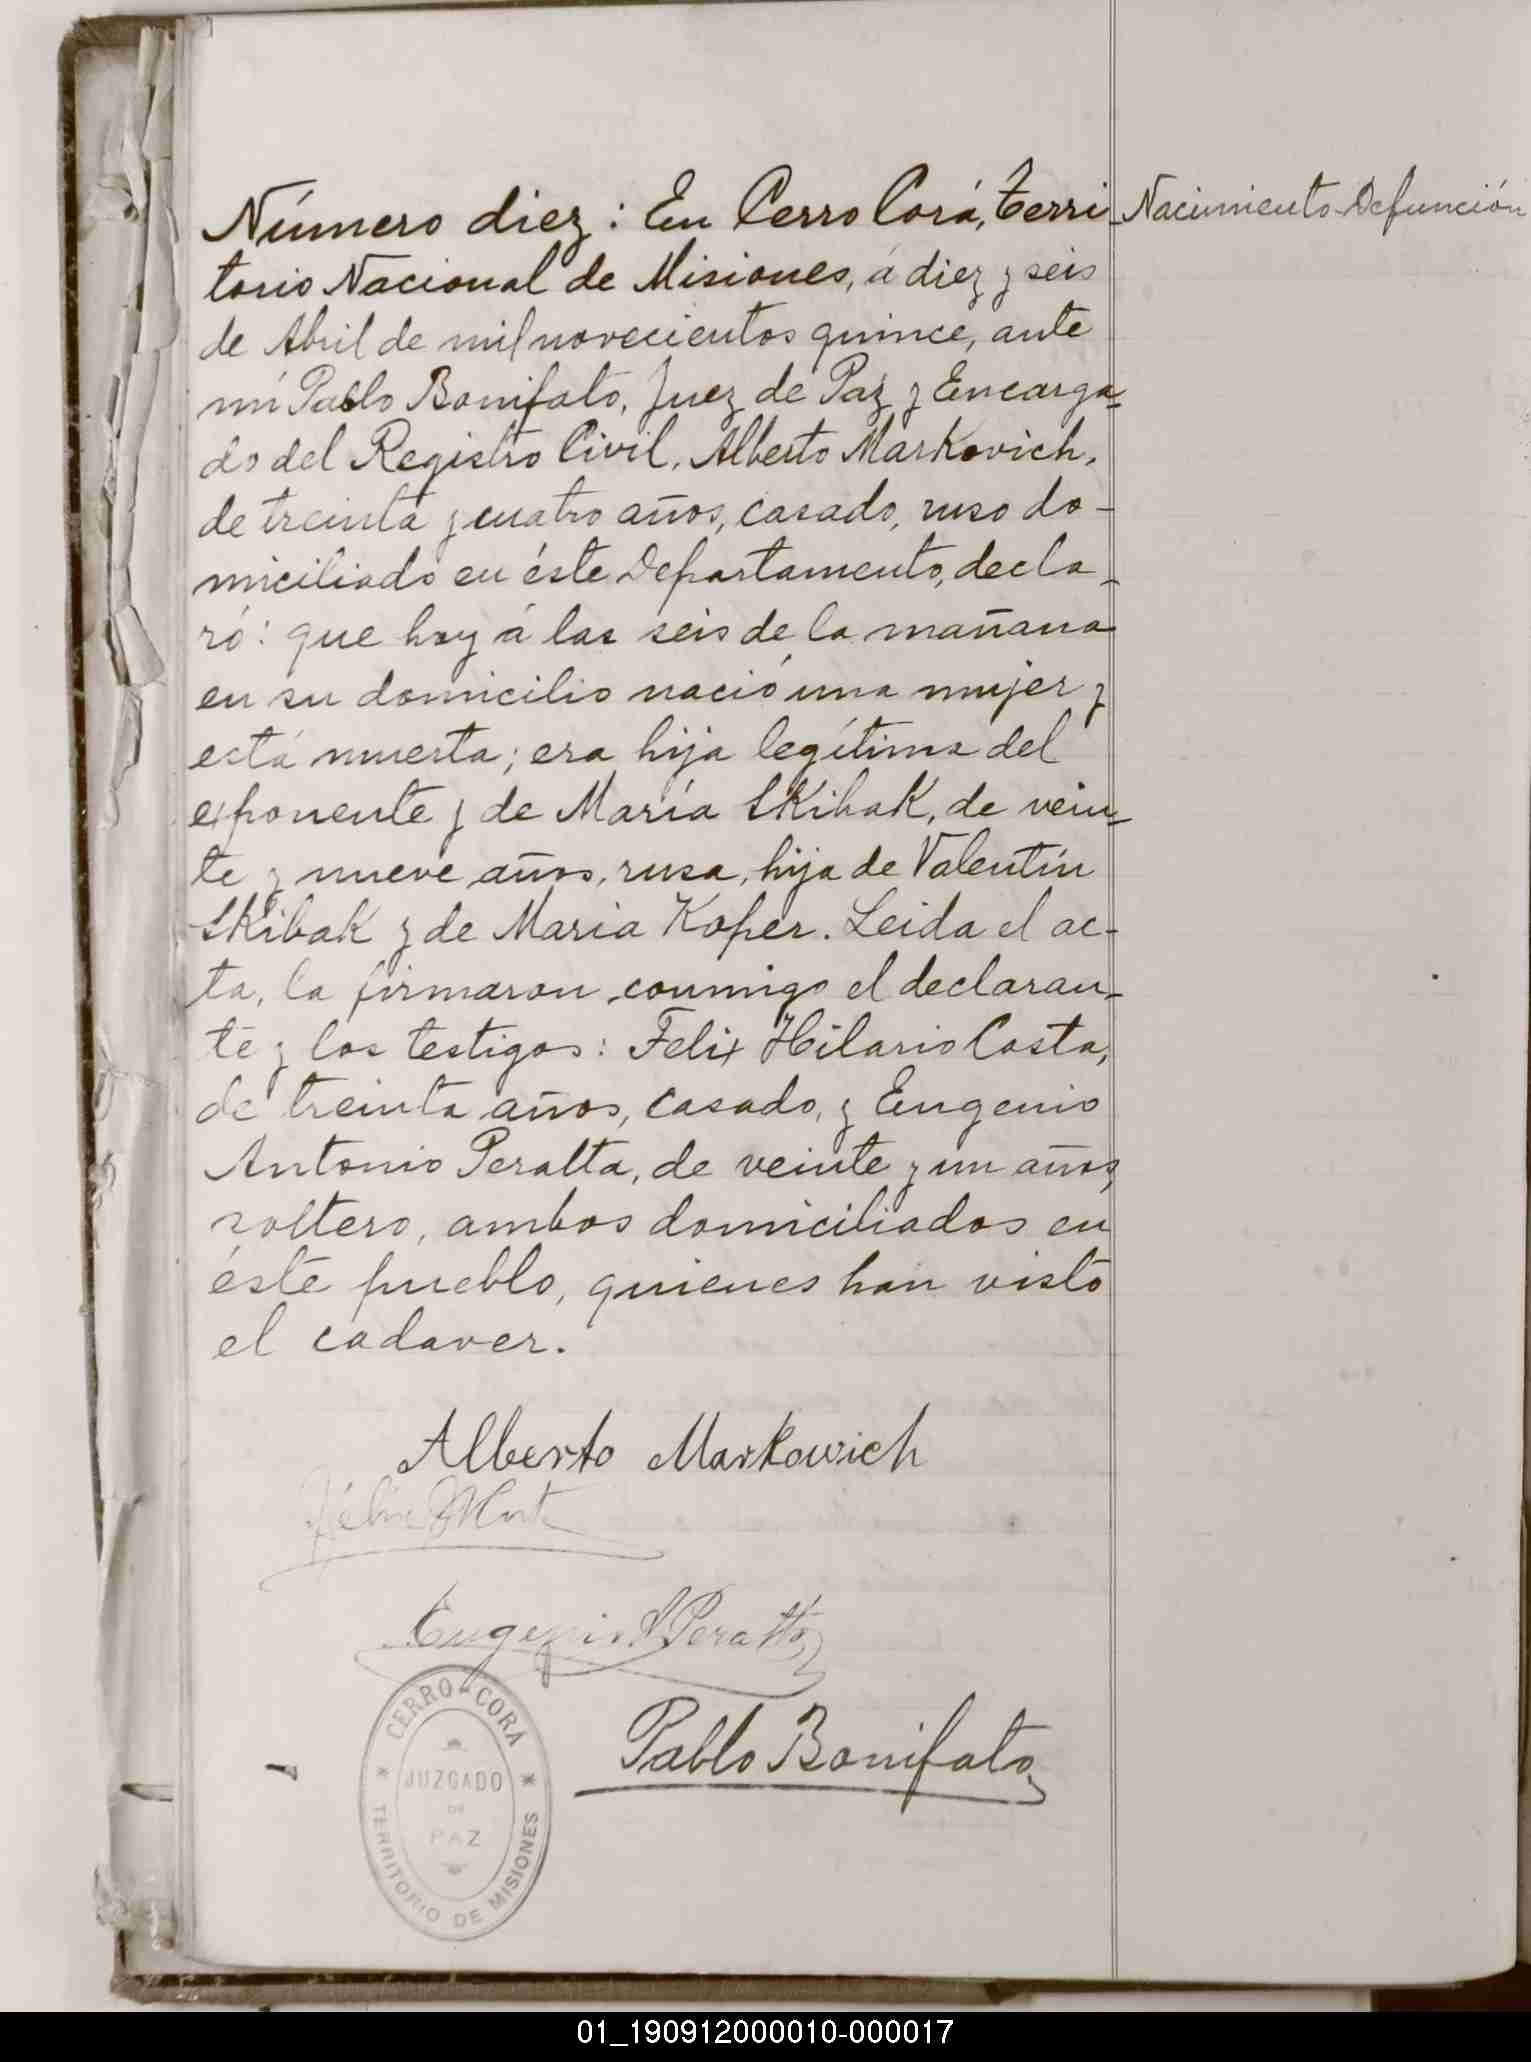 Número diez: En Cerro Corá, Terri- Nacimiento-Defunción
torio Nacional de Misiones, á diez y seis
de Abril de mil novecientos quince, ante
mí Pablo Bonifato, Juez de Paz y Encarga-
do del Registro Civil, Alberto Markovich,
de treinta y cuatro años, casado, ruso do-
miciliado en éste Departamento, decla-
ró: que hoy á las seis de la mañana
en su domicilio nació una mujer y
está muerta; era hija legítima del
exponente y de María Skibak, de vein-
te y nueve años, rusa, hija de Valentín
Skibak y de Maria Koper. Leida el ac-
ta, la firmaron conmigo el declaran-
te y los testigos: Felix Hilario Costa,
de treinta años, casado, y Eugenio
Antonio Peralta, de veinte y un años,
soltero, ambos domiciliados en
éste pueblo, quienes han visto
el cadaver.
Alberto Markowich
Eugenio A Peralta
Pablo Bonifato
CERRO-CORÁ
JUZGADO
DE
PAZ
TERRITORIO DE MISIONES
01_190912000010-000017